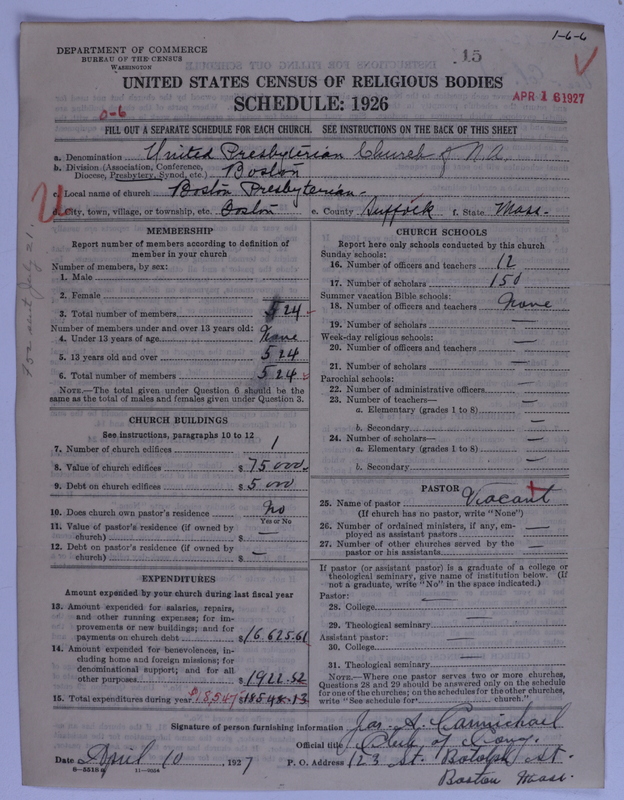 1-6-6
DEPARTMENT OF COMMERCE
BUREAU OF THE CENSUS
WASHINGTON
15
UNITED STATES CENSUS OF RELIGIOUS BODIES
SCHEDULE: 1926
APR 16 1927
0-6
FILL OUT A SEPARATE SCHEDULE FOR EACH CHURCH. SEE INSTRUCTIONS ON THE BACK OF THIS SHEET
a. Denomination United Presbyterian Church of N.A.
b. Division (Association, Conference, Diocese, Presbytery, Synod, etc.) Boston
c. Local name of church Boston Presbyterian
d. City, town, village, or township, etc. Boston e. County Suffolk f. State Mass.
MEMBERSHIP
Report number of members according to definition of
member in your church
Number of members, by sex:
1. Male
2. Female
3. Total number of members 524
Number of members under and over 13 years old:
4. Under 13 years of age None
5. 13 years old and over 524
6. Total number of members 524
NOTE.—The total given under Question 6 should be the
same as the total of males and females given under Question 3.
CHURCH BUILDINGS
See instructions, paragraphs 10 to 12
7. Number of church edifices 1
8. Value of church edifices $ 75000
9. Debt on church edifices $ 5000
10. Does church own pastor's residence No
Yes or No
11. Value of pastor's residence (if owned by
church) $ —
12. Debt on pastor's residence (if owned by
church) $ —
EXPENDITURES
Amount expended by your church during last fiscal year
13. Amount expended for salaries, repairs,
and other running expenses; for im-
provements or new buildings; and for
payments on church debt $ 16,625.61
14. Amount expended for benevolences, in-
cluding home and foreign missions; for
denominational support; and for all
other purposes $ 1922.52
15. Total expenditures during year $18547 $ 18548.13
CHURCH SCHOOLS
Report here only schools conducted by this church
Sunday schools:
16. Number of officers and teachers 12
17. Number of scholars 150
Summer vacation Bible schools:
18. Number of officers and teachers None
19. Number of scholars —
Week-day religious schools:
20. Number of officers and teachers —
21. Number of scholars —
Parochial schools:
22. Number of administrative officers —
23. Number of teachers—
a. Elementary (grades 1 to 8) —
b. Secondary —
24. Number of scholars—
a. Elementary (grades 1 to 8) —
b. Secondary —
PASTOR
25. Name of pastor Vacant
(If church has no pastor, write "None")
26. Number of ordained ministers, if any, em-
ployed as assistant pastors —
27. Number of other churches served by the
pastor or his assistants —
If pastor (or assistant pastor) is a graduate of a college or
theological seminary, give name of institution below. (If
not a graduate, write "No" in the space indicated.)
Pastor:
28. College —
29. Theological seminary —
Assistant pastor:
30. College —
31. Theological seminary —
NOTE.—Where one pastor serves two or more churches,
Questions 28 and 29 should be answered only on the schedule
for one of the churches; on the schedules for the other churches,
write "See schedule for church."
Signature of person furnishing information Jas. A. Carmichael
Official title Clerk of Cong.
Date April 10 1927 P. O. Address 123 St. Botolph St.
Boston Mass.